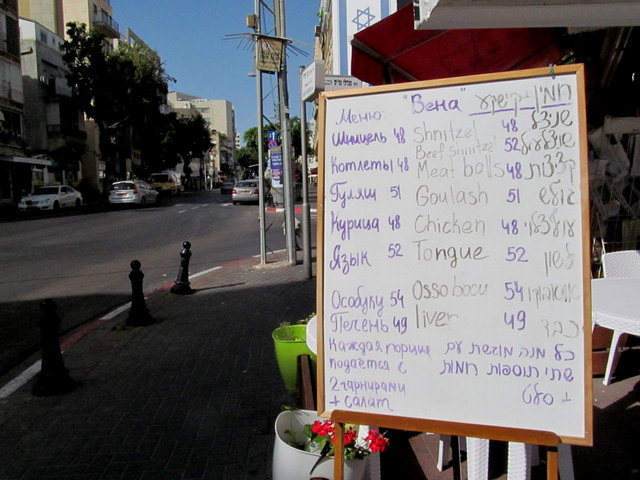 Меню: "Вена" חמין וקישקע
Шницель 48 Shnitzel 48 שניצל
Beef Shnitzel 52 שניצל עגל
Котлеты 48 Meat balls 48 קציצות
Гуляш 51 Goulash 51 גולש
Курица 48 Chicken 48
Язык 52 Tongue 52 לשון
Особуку 54 Osso bocu 54 אוסובוקו
Печень 49 liver 49 כבד
Каждая порция כל מנה מוגשת עם
подаётся с שתי תוספות חמות
2 гарнирами + סלט
+ салат